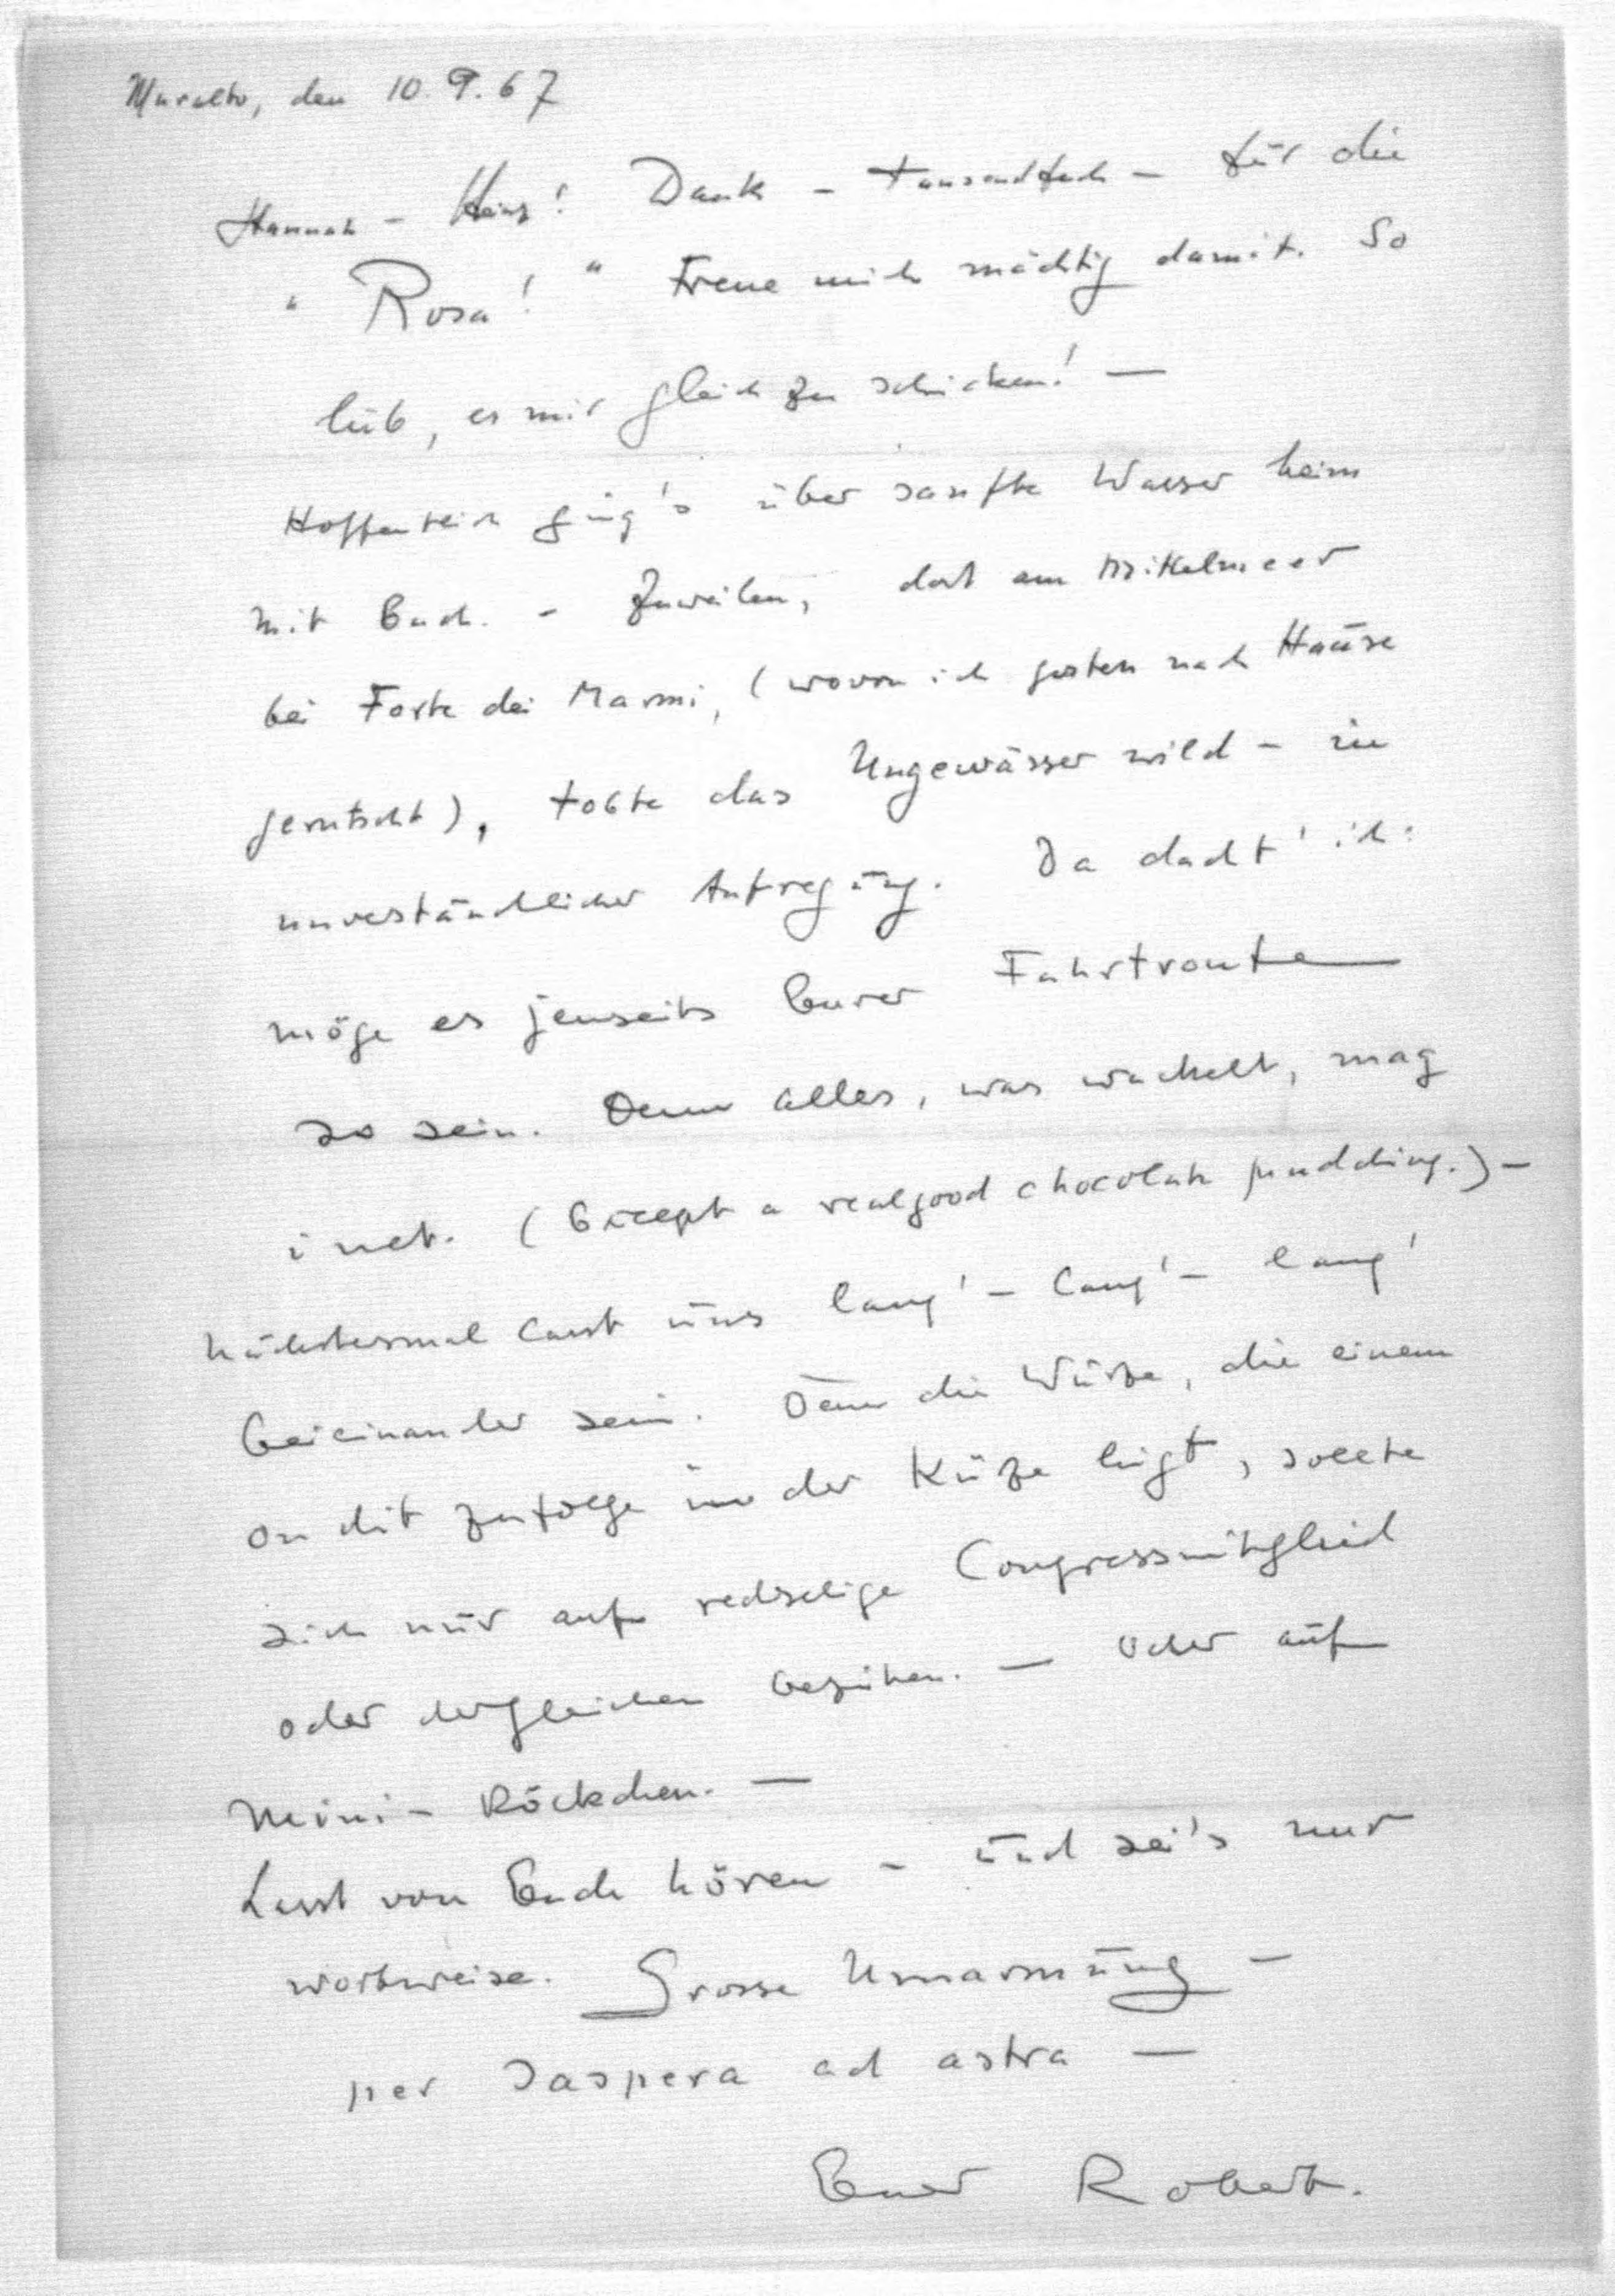 Muralto, den 10.9.67
Hannah - Heinz! Dank - tausendfach - für die
"Rosa!" Freue mich mächtig damit. So
lieb, es mir gleich zu schicken! —
Hoffentlich ging's über sanfte Wasser heim
mit Euch. - Zuweilen, dort am Mittelmeer
bei Forte dei Marmi, (wovon ich gestern nach Hause
gerutscht), tobte das Ungewässer wild - in
unverständlicher Aufregung. Da dacht' ich:
möge es jenseits Eurer Fahrtroute
so sein. Denn alles, was wackelt, mag
i net. (Except a real good chocolate pudding.) —
Nächstesmal lasst uns lang' - lang' - lang'
beieinander sein. Denn die Würze, die einem
on dit zufolge in der Kürze liegt, sollte
sich nur auf redselige Congressmitglied
oder dergleichen beziehen. — Oder auf
Mini-Röckchen. —
Lasst von Euch hören - und sei's nur
wortweise. Grosse Umarmung —
per Jaspera ad astra —
Euer Robert.